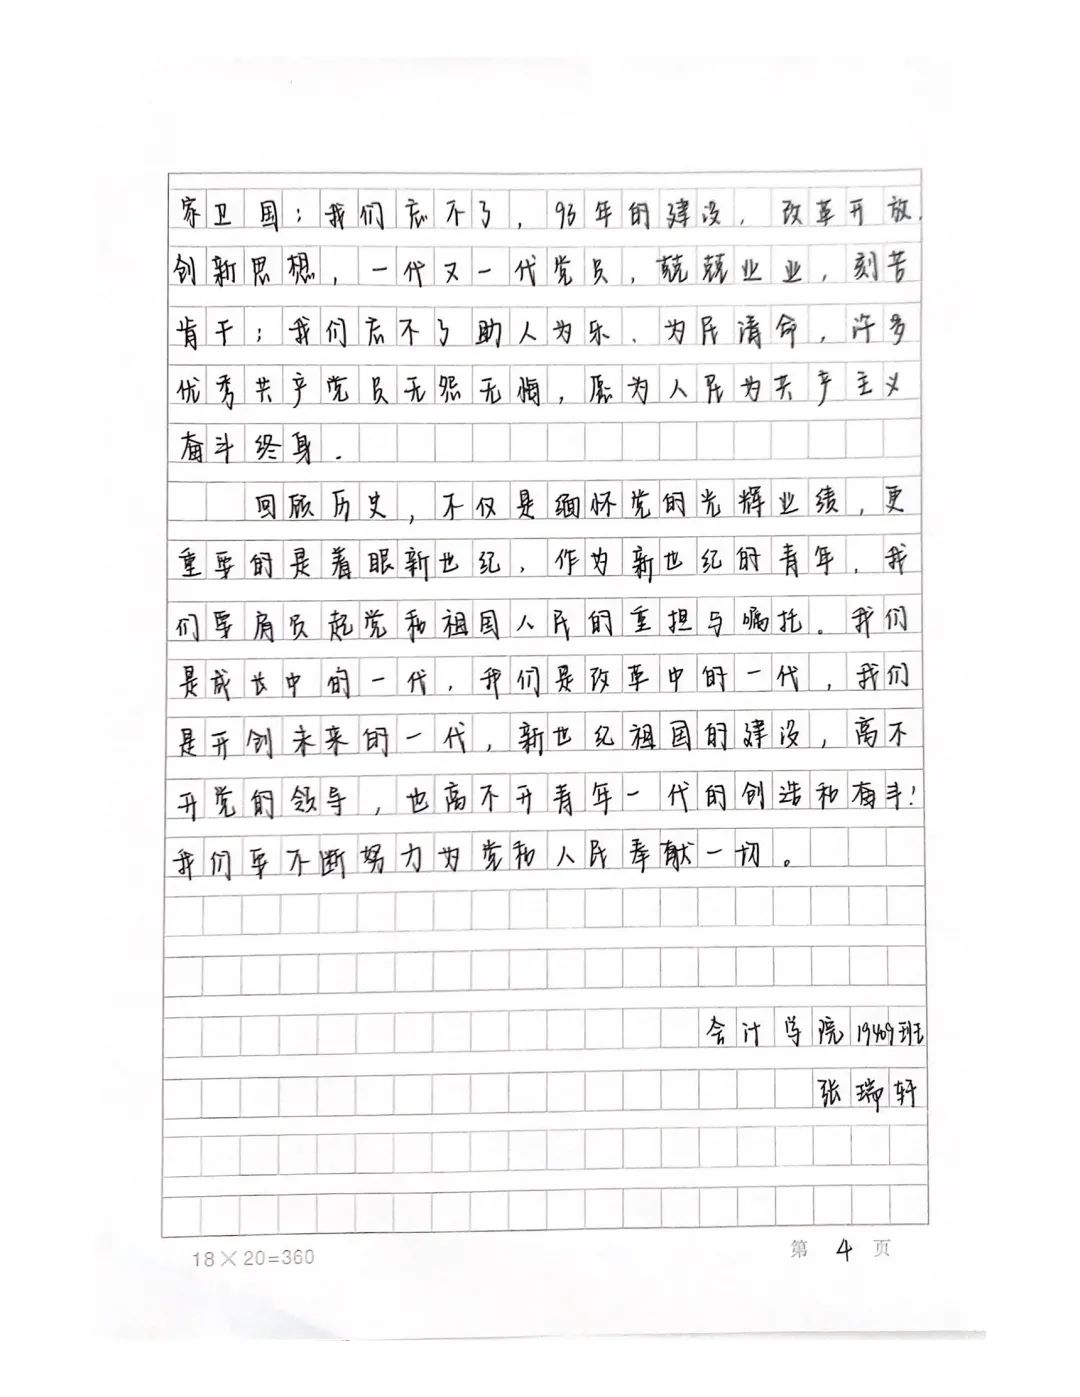 家卫国；我们忘不了，93年的建设，改革开放，
创新思想，一代又一代党员，兢兢业业，刻苦
肯干；我们忘不了助人为乐、为民请命，许多
优秀共产党员无怨无悔，愿为人民为共产主义
奋斗终身.
回顾历史，不仅是缅怀党的光辉业绩，更
重要的是着眼新世纪，作为新世纪的青年，我
们要肩负起党和祖国人民的重担与嘱托。我们
是成长中的一代，我们是改革中的一代，我们
是开创未来的一代，新世纪祖国的建设，离不
开党的领导，也离不开青年一代的创造和奋斗！
我们要不断努力为党和人民奉献一切。
会计学院19409班
张瑞轩
18×20=360 第 4 页